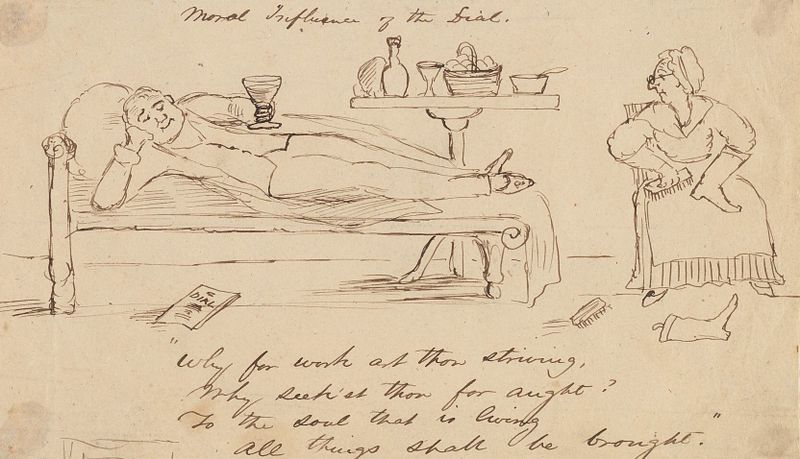 Moral Influence of the Dial.
DIAL
"Why for work art thou striving,
Why seek'st thou for aught?
To the soul that is living
All things shall be brought."